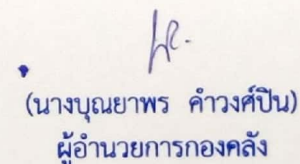 (นางบุณยาพร คำวงศ์ปิน)
ผู้อำนวยการกองคลัง